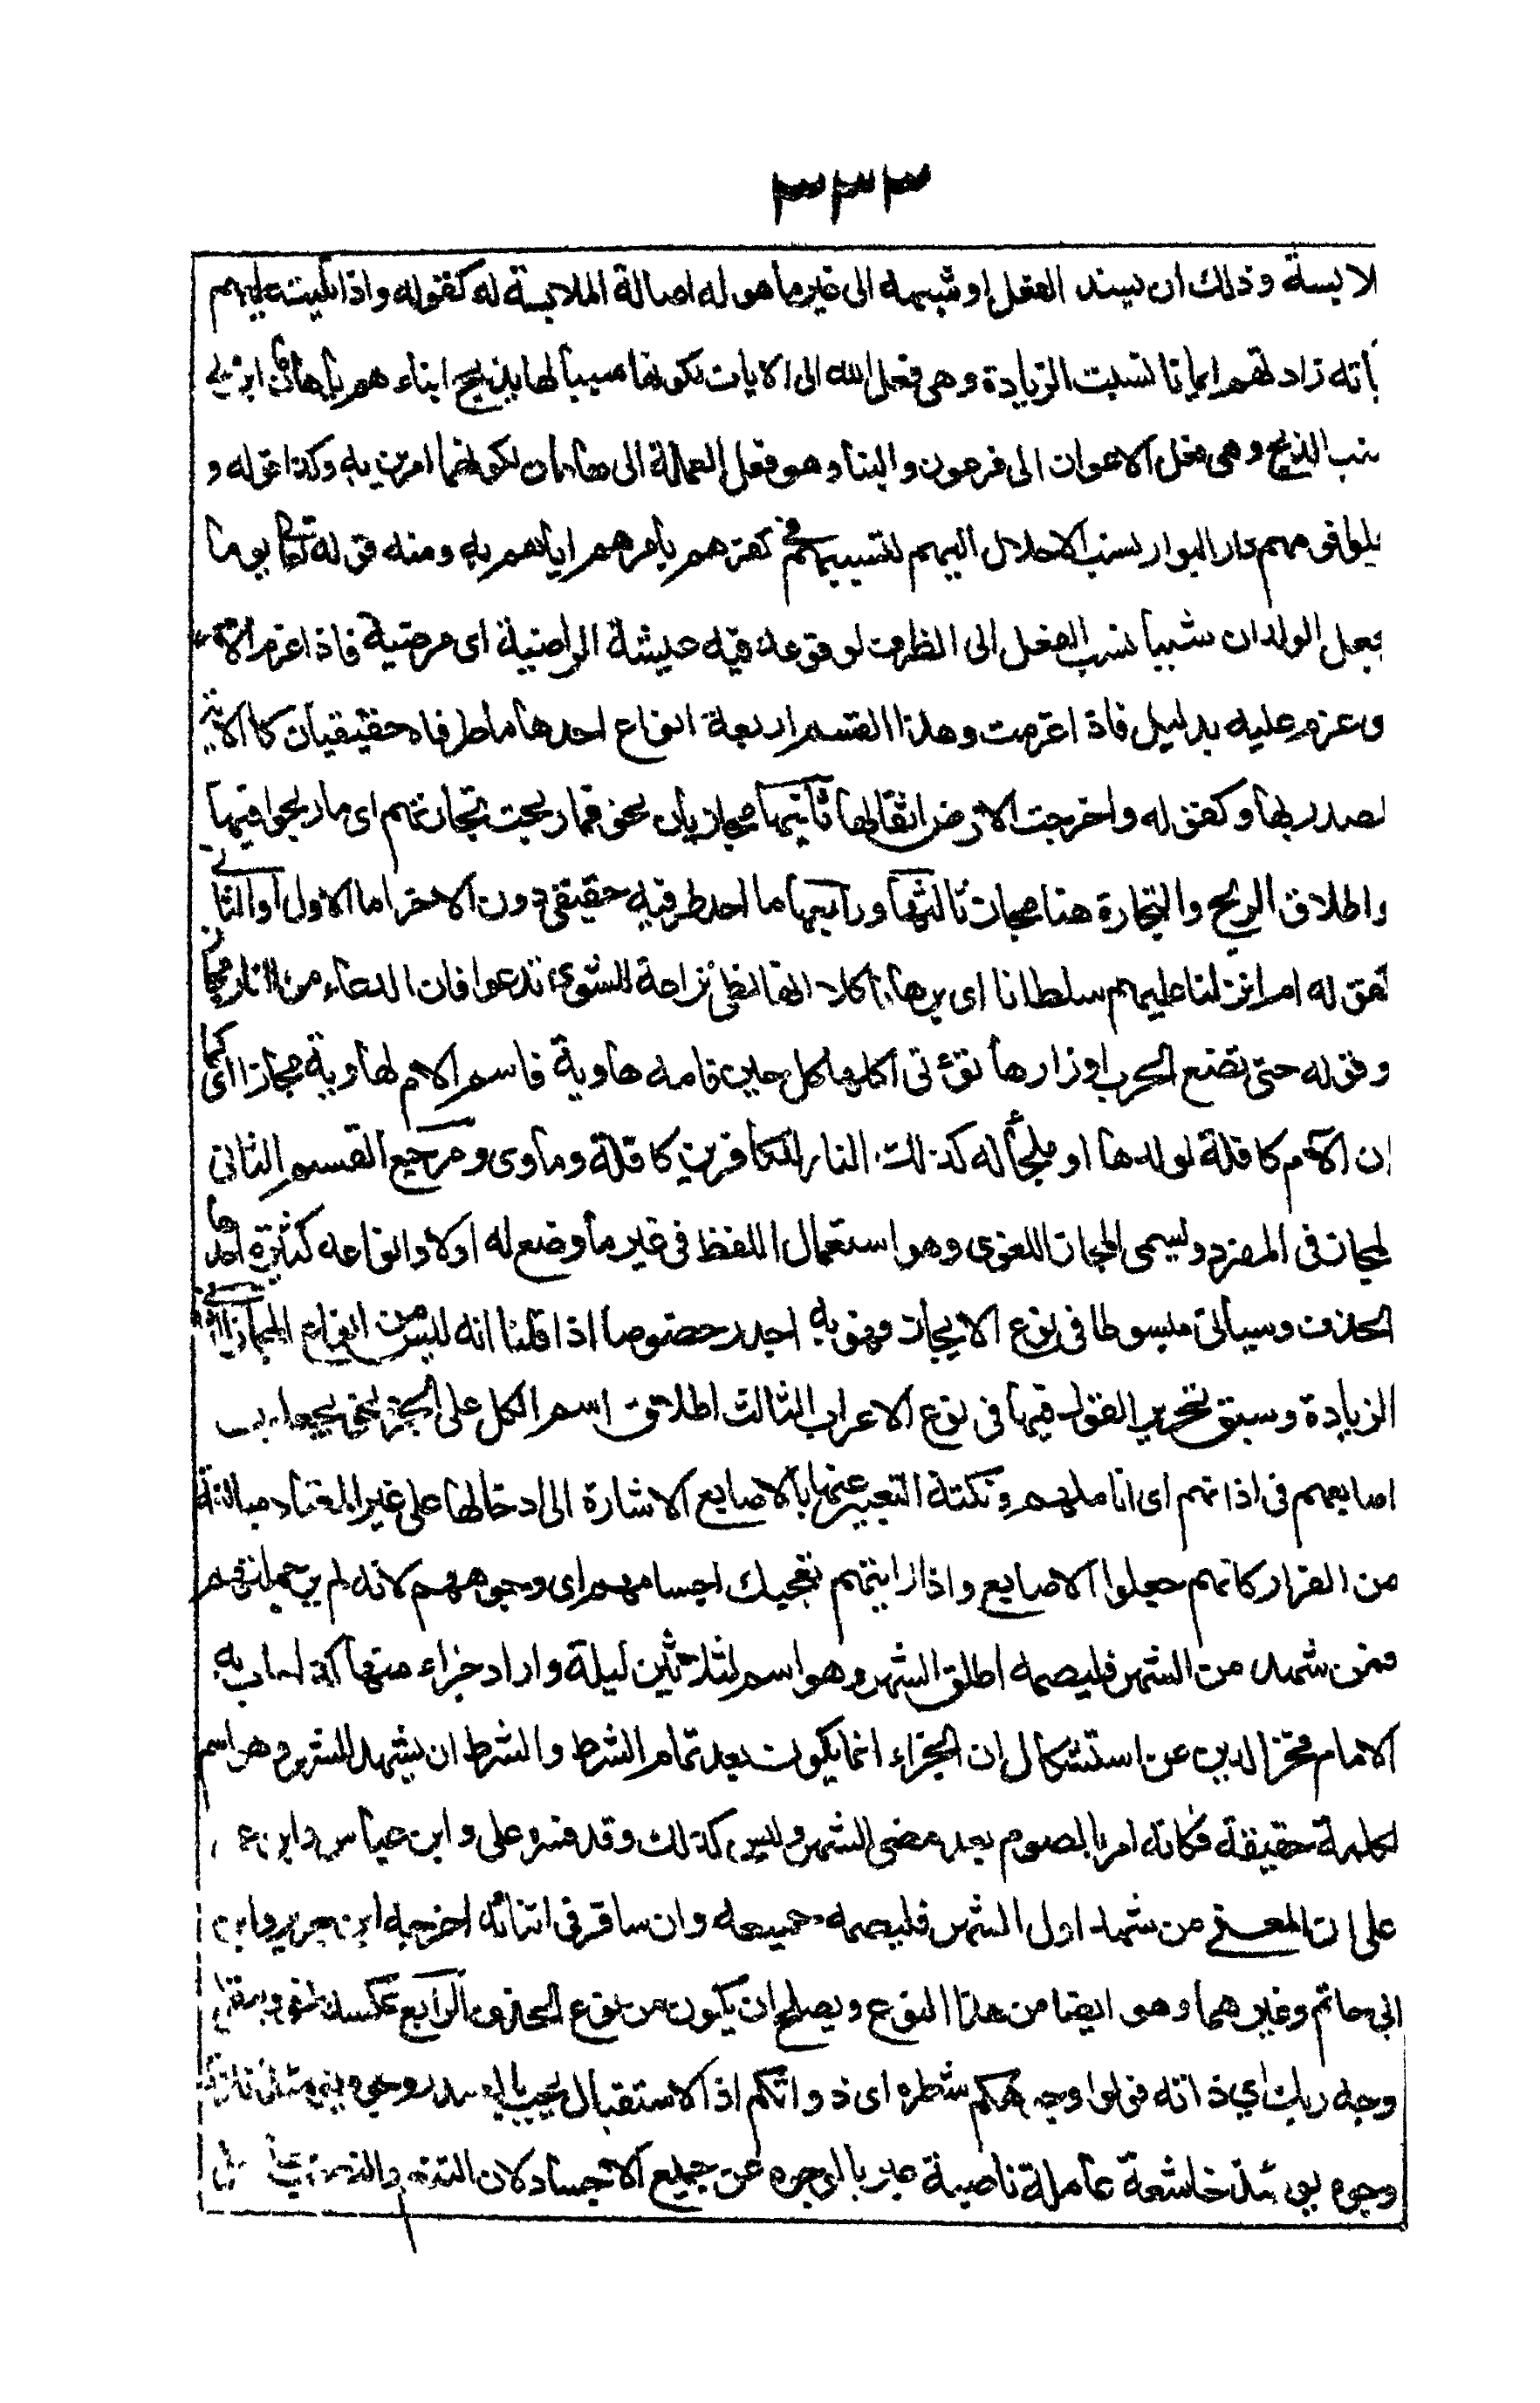 ٣٣٣
لابسة وذلك ان يسند الفعل او شبهه الى غير ما هو له اصالة الملابسة له كقوله واذا تليت عليهم
اٰياته زادتهم ايمانا نسبت الزيادة وهى فعل الله الى الايات لكونها سببا لها يذبح ابناءهم يا هامان ابن لى
نسب الذبح وهى فعل الاعوان الى فرعون والبناء وهو فعل العملة الى هامان لكونهما امرين به وكذا قوله و
احلوا قومهم دار البوار نسب الاحلال اليهم لتسببهم فى كفرهم بامرهم اياهم به ومنه قوله تعالى يوما
يجعل الولدان شيبا نسب الفعل الى الظرف لوقوعه فيه عيشة الراضية اى مرضية فاذا عزم الامر
اى عزم عليه بدليل فاذا عزمت وهذا القسم اربعة انواع احدها ما طرفاه حقيقيان كالاية
لمصدر بها وكقوله واخرجت الارض اثقالها ثانيها مجازيان نحو فما ربحت تجارتهم اى ما ربحوا فيها
واطلاق الربح والتجارة هنا مجاز ثالثها ورابعها ما احد طرفيه حقيقى دون الاخر اما الاول او الثانى
كقوله ام انزلنا عليهم سلطانا اى برهانا كلا انها لظى نزاعة للشوى تدعوا فان الدعاء من النار مجاز
وقوله حتى تضع الحرب اوزارها تؤتى اكلها كل حين فامه هاوية فاسم الام لهاوية مجاز اى كما
ان الام كافلة لولدها او ملجأ له كذلك النار للكافرين كافلة وماوى ومرجع القسم الثانى
لمجاز فى المفرد ويسمى المجاز اللغوى وهو استعمال اللفظ فى غير ما وضع له اولا وانواعه كثيرة احدها
الحذف وسياتى مبسوطا فى نوع الايجاز وهو به اجدر خصوصا اذا قلنا انه ليس من انواع المجاز الثانى
الزيادة وسبق تحرير القول فيها فى نوع الاعراب الثالث اطلاق اسم الكل على الجزء نحو يجعلون
اصابعهم فى اذانهم اى اناملهم ونكتة التعبير عنها بالاصابع الاشارة الى ادخالها على غير المعتاد مبالغة
من الفرار كانهم جعلوا الاصابع واذا رايتهم تعجبك اجسامهم اى وجوههم لانه لم ير جملتهم
فمن شهد من الشهر فليصمه اطلق الشهر وهو اسم لثلاثين ليلة واراد جزاء منها كذا اجاب به
الامام فخر الدين عن استشكال ان الجزاء انما يكون بعد تمام الشرط والشرط ان يشهد الشهر وهو اسم
لكله حقيقة فكانه امر بالصوم بعد مضى الشهر وليس كذلك وقد فسره على وابن عباس وابن عمر
على ان المعنى من شهد اول الشهر فليصمه جميعه وان سافر فى اثنائه اخرجه ابن جرير وابن
ابى حاتم وغيرهما وهو ايضا من هذا النوع ويصلح ان يكون من نوع الحذف الرابع عكسه نحو ويبقى
وجه ربك اى ذاته فولوا وجوهكم شطره اى ذواتكم اذ الاستقبال يجب بالصدر وجوه يومئذ ناعمة
وجوه يومئذ خاشعة عاملة ناصبة عبر بالوجوه عن جميع الاجساد لان التنعم والنصب